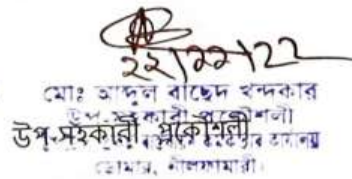 ২২|১১|২২
মোঃ আব্দুল বাছেদ খন্দকার
উপ-সহকারী প্রকৌশলী
উপ-সহকারী প্রকৌশলী
ডোমার, নীলফামারী।